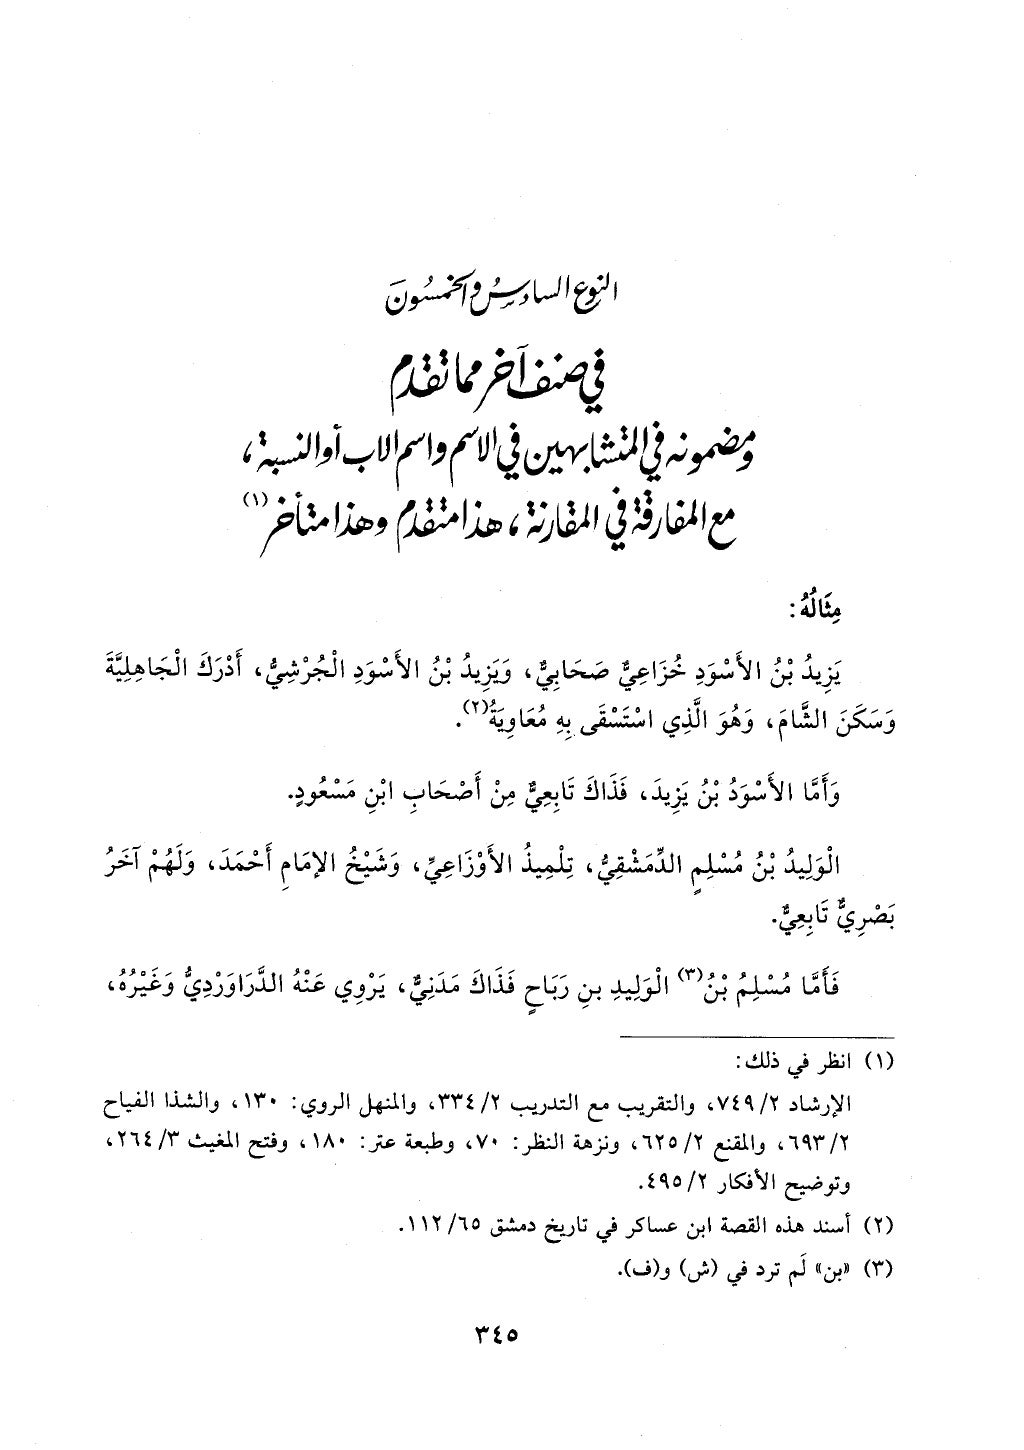 النوع السادسُ والخمسُونَ
في صنف آخر مما تقدم
ومضمونه في المتشابهين في الاسم واسم الاب أو النسبة،
مع المفارقة في المقارنة، هذا متقدم وهذا متأخر(١)
مِثَالُهُ:
يَزِيدُ بْنُ الأَسْوَدِ خُزَاعِيٌّ صَحَابِيٌّ، وَيَزِيدُ بْنُ الأَسْوَدِ الْجُرْشِيُّ، أَدْرَكَ الْجَاهِلِيَّةَ
وَسَكَنَ الشَّامَ، وَهُوَ الَّذِي اسْتَسْقَى بِهِ مُعَاوِيَةُ(٢).
وَأَمَّا الأَسْوَدُ بْنُ يَزِيدَ، فَذَاكَ تَابِعِيٌّ مِنْ أَصْحَابِ ابْنِ مَسْعُودٍ.
الْوَلِيدُ بْنُ مُسْلِمٍ الدِّمَشْقِيُّ، تِلْمِيذُ الأَوْزَاعِيِّ، وَشَيْخُ الإمَامِ أَحْمَدَ، وَلَهُمْ آخَرُ
بَصْرِيٌّ تَابِعِيٌّ.
فَأَمَّا مُسْلِمُ بْنُ(٣) الْوَلِيدِ بنِ رَبَاحٍ فَذَاكَ مَدَنِيٌّ، يَرْوِي عَنْهُ الدَّرَاوَرْدِيُّ وَغَيْرُهُ،
(١) انظر في ذلك:
الإرشاد ٧٤٩/٢، والتقريب مع التدريب ٣٣٤/٢، والمنهل الروي: ١٣٠، والشذا الفياح
٦٩٣/٢، والمقنع ٦٢٥/٢، ونزهة النظر: ٧٠، وطبعة عتر: ١٨٠، وفتح المغيث ٢٦٤/٣،
وتوضيح الأفكار ٤٩٥/٢.
(٢) أسند هذه القصة ابن عساكر في تاريخ دمشق ١١٢/٦٥.
(٣) «بن» لَم ترد في (ش) و(ف).
٣٤٥